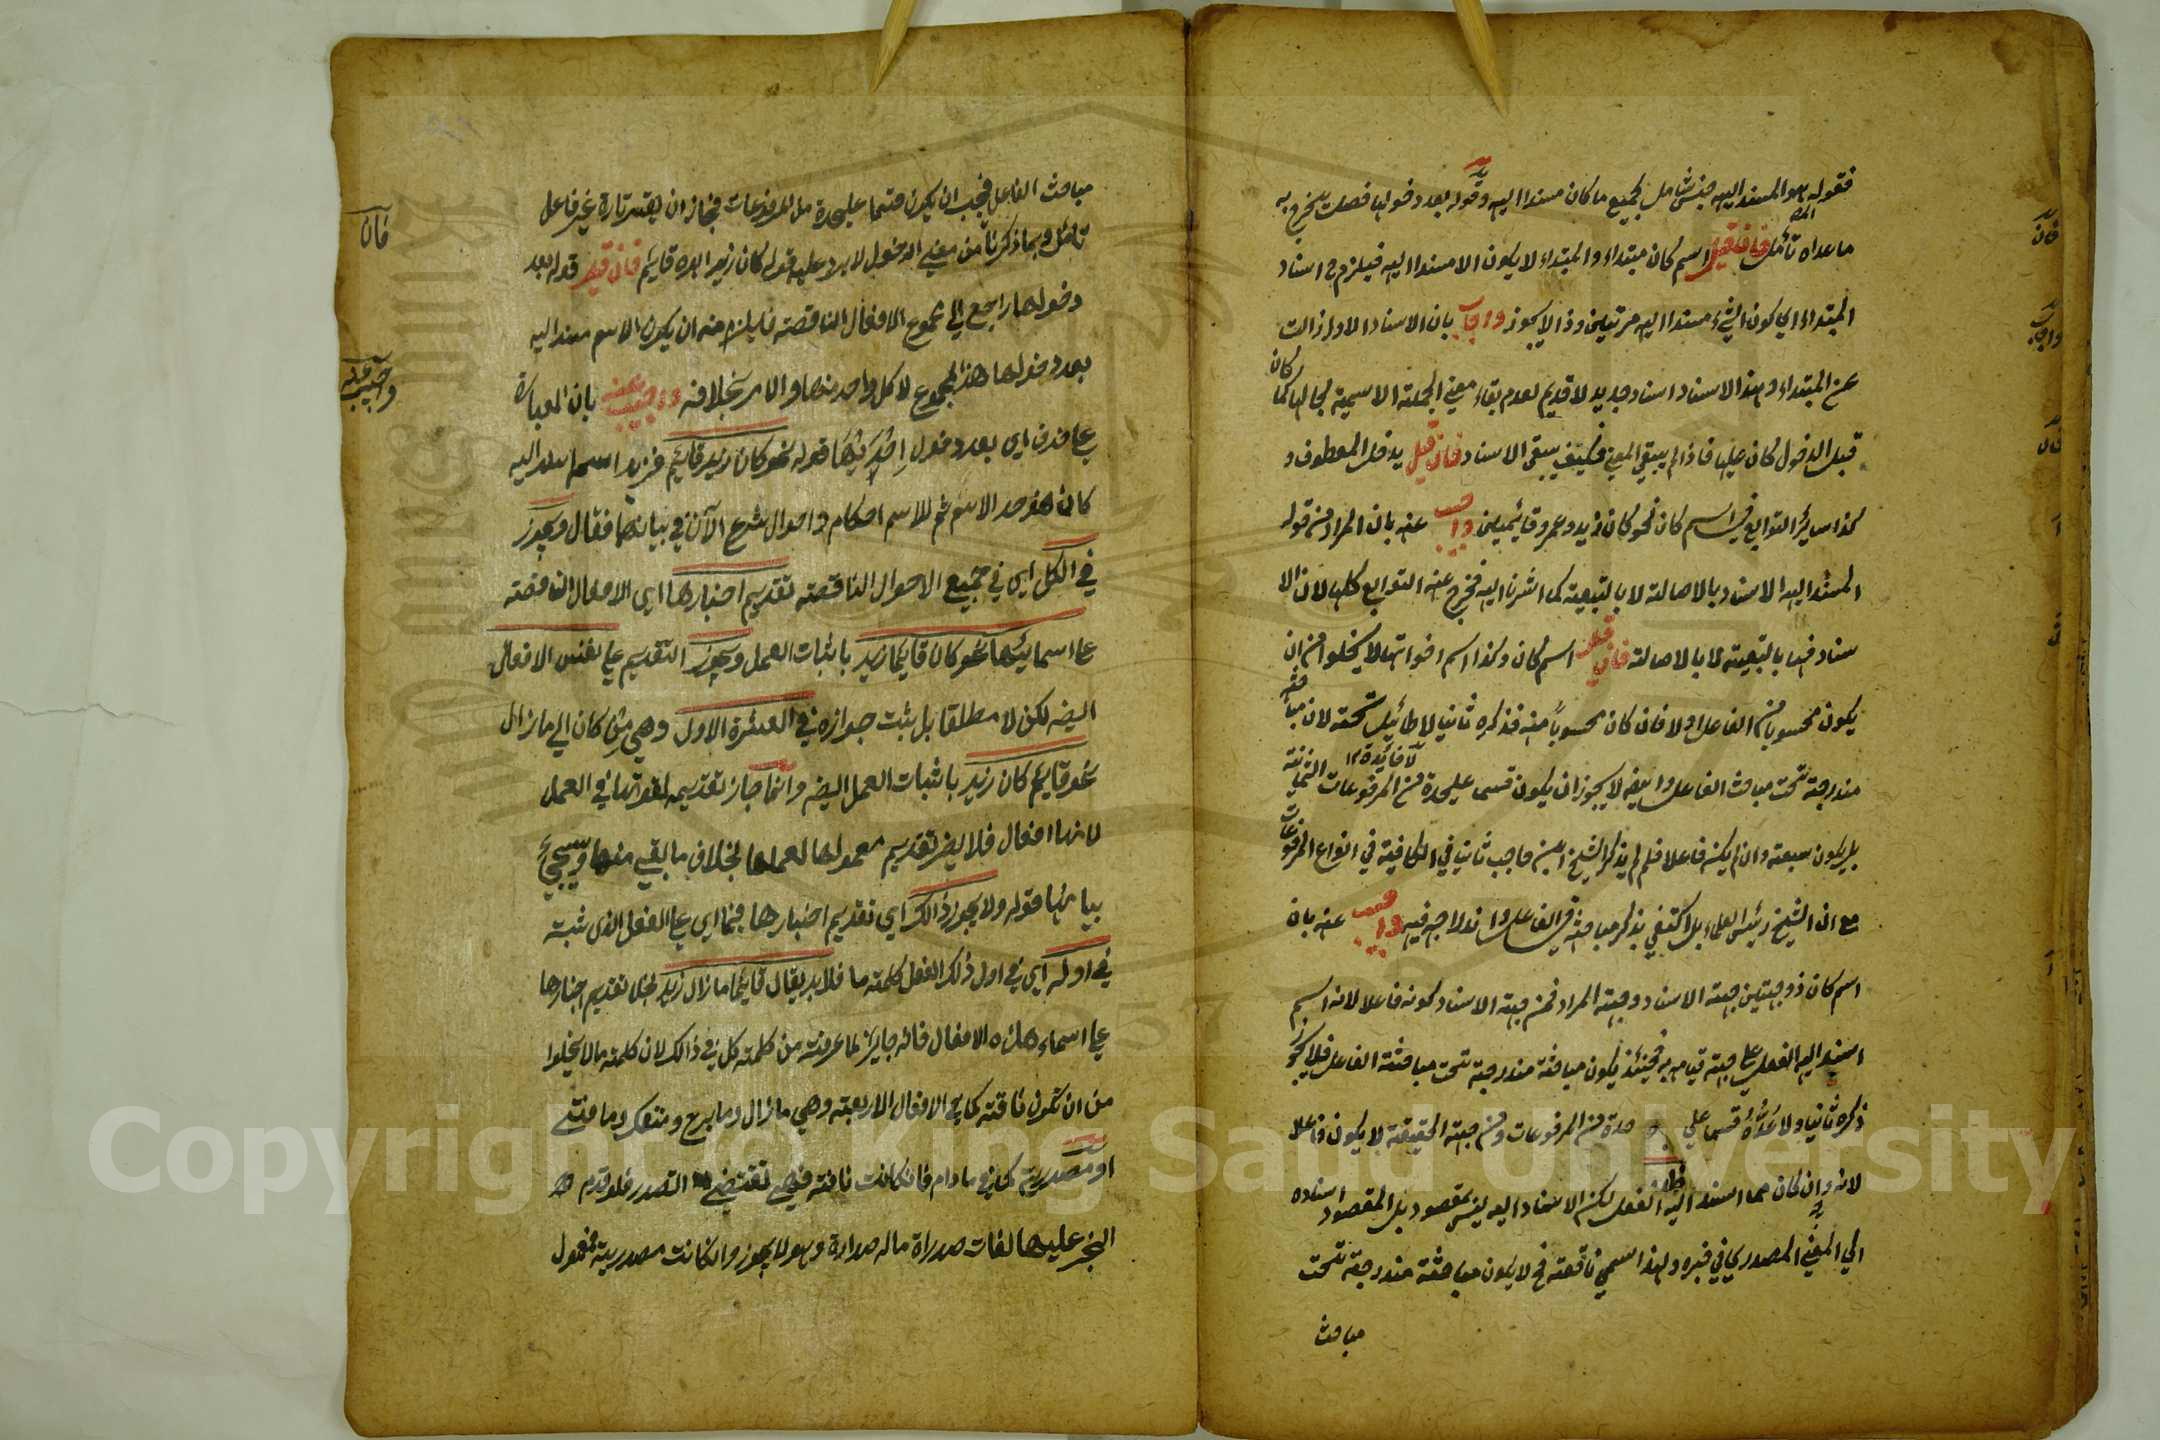 فقوله هو المسند اليه جنس شامل لجميع ما كان مسندا اليه وقوله بعد دخولها فصلت يخرج به
ما عداه تأمل فان قيل اسم كان مبتداء والمبتداء لا يكون الا مسندا اليه فيلزم ح اسناد
المبتداء اي كون الشيء مسندا اليه مرتين وذا لا يجوز واجيب بان الاسناد الاول زالت
عن المبتداء وهذا الاسناد اسناد جديد لا قديم لعدم بقاء معني الجملة الاسمية بحالها كما كان
قبل الدخول كان عليها فاذا لم يبقي المعني فكيف يبقي الاسناد فان قيل يدخل المعطوف و
كذا سائر التوابع في اسم كان نحو كان زيد وعمرو قائمين واجيب عنه بان المراد من قوله
المسند اليه الاسناد بالاصالة لا بالتبعية كما اشرنا اليه فخرج عنه التوابع كلها لان الا
سناد فيها بالتبعية لا بالاصالة فان قيل اسم كان وكذا اسم اخواتها لا يخلوا من ان
يكون محسوبا من الفاعل او لا فان كان محسوبا منه فذكره ثانيا لا طائل تحته لان مباحثه
مندرجة تحت مباحث الفاعل وايضه لا يجوز ان يكون قسم عليحدة من المرفوعات الثمانية
بل يكون سبعة وان لم يكن فاعلا فلم لم يذكر الشيخ ابن حاجب ثانيا في الكافية في انواع المرفوعات
مع ان الشيخ رئيس العلماء بل اكتفي بذكر مباحثه في الفاعل واندراجه فيه واجيب عنه بان
اسم كان ذو جهتين جهة الاسناد وجهة المراد فمن جهة الاسناد كونه فاعلا لانه اسم
اسند اليه الفعل علي جهة قيامه به فحينئذ يكون مباحثة مندرجة تحت مباحثة الفاعل فلا يجوز
ذكره ثانيا ولا عده قسما علي حدة من المرفوعات ومن جهة الحقيقة لا يكون فاعلا
لانه وان كان مما اسند اليه الفعل لكن الاسناد اليه ليس بمقصود بل المقصود اسناده
الي المعني المصدري في خبره ولهذا سمي ناقصة فح لا يكون مباحثة مندرجة تحت
مباحث
مباحث الفاعل فيجب ان يكون قسما عليحدة من المرفوعات فجاز ان يعتبر تارة غير فاعل
تامل وبما ذكرنا من معني الدخول لا يرد عليه قوله كان زيد ابوه قائم فان قيل قوله بعد
دخولها راجع الي مجموع الافعال الناقصة فايلزم منه ان يكون الاسم مسند اليه
بعد دخولها هذا المجموع لا كل واحد منها والامر بخلافه واجيب عنه بان العبارة
علي حذف اي بعد دخول احديها قوله نحو كان زيد قائم فزيد اسم اسند اليه
كان هذا حد الاسم ثم للاسم احكام واحوال شرع الآن في بيانها فقال ويجوز
في الكل اي في جميع الاحوال الناقصة تقديم اخبارها اي الافعال الناقصة
علي اسمائها نحو كان قائما زيد باثبات العمل ويجوز التقديم علي نفس الافعال
ايضه لكن لا مطلقا بل يثبت جوازه في العشرة الاول وهي من كان الي ما زال
نحو قائم كان زيد باثبات العمل ايضه وانما جاز تقديمه لقوتها في العمل
لانها افعال فلا يضر تقديم معمولها لعملها بخلاف ما بقي منها وسيجيء
بيانها قوله ولا يجوز ذالك اي تقديم اخبارها فيما اي علي الفعل الذي ثبت
في اوله اي في اول ذلك الفعل كلمة ما فلا يقال قائما ما زال زيد بخلاف تقديم اخبارها
علي اسماء هذه الافعال فانه جائز لما عرفته من كلمة كل في ذالك لان كلمة ما لا يخلوا
من ان تكون نافية كما في الافعال الاربعة وهي ما زال وما برح وما انفك وما فتئ
او مصدرية كما في ما دام فان كانت نافية فهي تقتضي التصدر فلو قدم
الخبر عليها لفات صدراة ما له صدارة وهو لا يجوز وان كانت مصدرية فمعمول
فان
واجيب عنه
فان
واجيب
فان